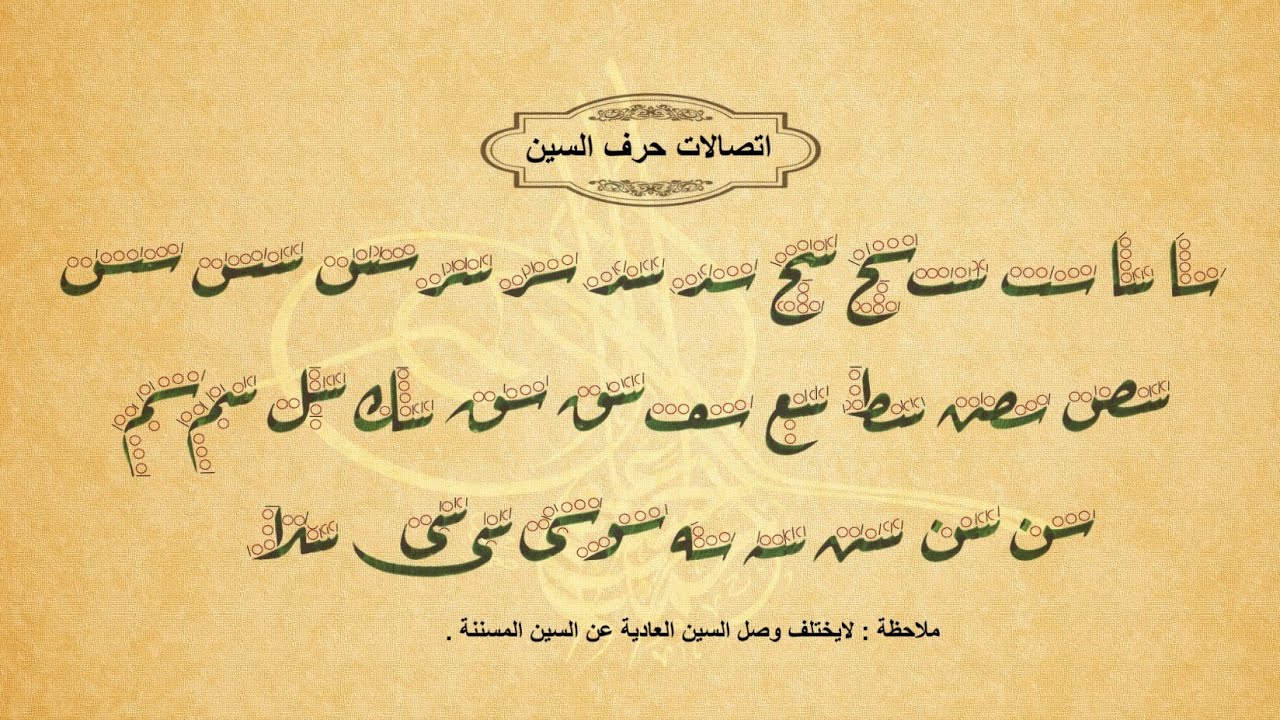 اتصالات حرف السين
سا سا ست ست سح سح سد سد سر سر سس سس سس
سص سص سط سع سف سق سق سك سل سم سم
سن سن سه سه سه سو سى سى سى سلا
ملاحظة : لايختلف وصل السين العادية عن السين المسننة .